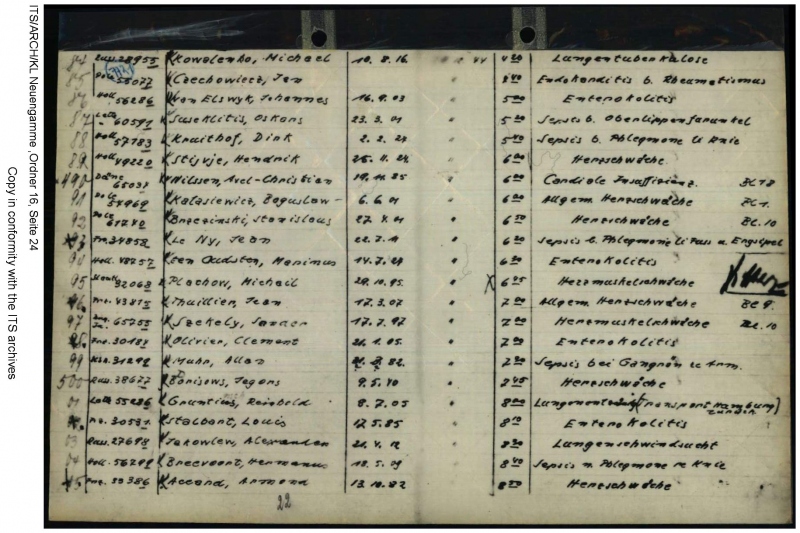 ITS/ARCH/KL Neuengamme, Ordner 16, Seite 24
Copy in conformity with the ITS archives
Russ. 28955 Kowalenko, Michael 10. 8. 16 44 4 20 Lungentuberkulose
85 Pole 55077 Czechowicz, Jan " 8 40 Endokarditis b. Rheumatismus
86 Holl. 56286 van Elswyk, Johannes 16. 9. 03 " 5 00 Enterokolitis
87 Lett. 60591 Suseklitis, Oskars 23. 3. 01 " 5 20 Sepsis b. Oberlippenfurunkel
88 Holl. 57183 Kruithof, Dirk 2. 2. 24 " 5 40 Sepsis b. Phlegmone li Knie
89 Holl. 49220 Stijvje, Hendrik " 6 00 Herzschwäche
490 Däne 65037 Nilssen, Axel-Christian 19. 11. 85 " 6 00 Cardiale Insuffizienz.
91 Pole Kalasiewicz, Boguslaw- 6. 6. 01 " 6 20 Allgem. Herzschwäche Bl. 1.
92 Pole Brzezinski, Stanislaus 27. 4. 01 " 6 30 Herzschwäche Bl. 10
93 Fr. 34858 Le Ny, Jean 22. 7. 1 " 6 20 Sepsis b. Phlegmone li Fuss u.
94 Holl. 48757 ten Oudsten, Marinus 14. 7. 24 " 6 20 Enterokolitis
95 32068 Plachow, Michail 29. 10. 95 " X 6 25 Herzmuskelschwäche
96. Frz. 43815 Thuillier, Jean 17. 3. 07 " 7 00 Allgem. Herzschwäche Bl. 9.
97 65755 Szekely, Sandor 17. 7. 97 " 7 00 Herzmuskelschwäche Bl. 10
98. Frz. 30184 Olivier, Clement 21. 1. 05 " 7 20 Enterokolitis
99 31292 Muhr, Allan 82. " 7 30 Sepsis bei Gangrän re Arm.
500 Russ. 38677 Borisows, Jegors 9. 5. 40 " 7 45 Herzschwäche
01 Lett. 55226 Gruntins, Reinhold 8. 7. 05 " 8 00 (Transport Hamburg zurück)
Fr. 30531 Stalbart, Louis 17. 5. 85 " 8 10 Enterokolitis
03 Russ. 27698 Jakowlew, Alexander 21. 4. 12 " 8 20 Lungenschwindsucht
04 Holl. 56299 Breevoort, Hermanus 18. 5. 01 " 8 40 Sepsis n. Phlegmone re Knie
05 Frz. 39386 Accard, Armond 13. 10. 82 " 8 50 Herzschwäche
22